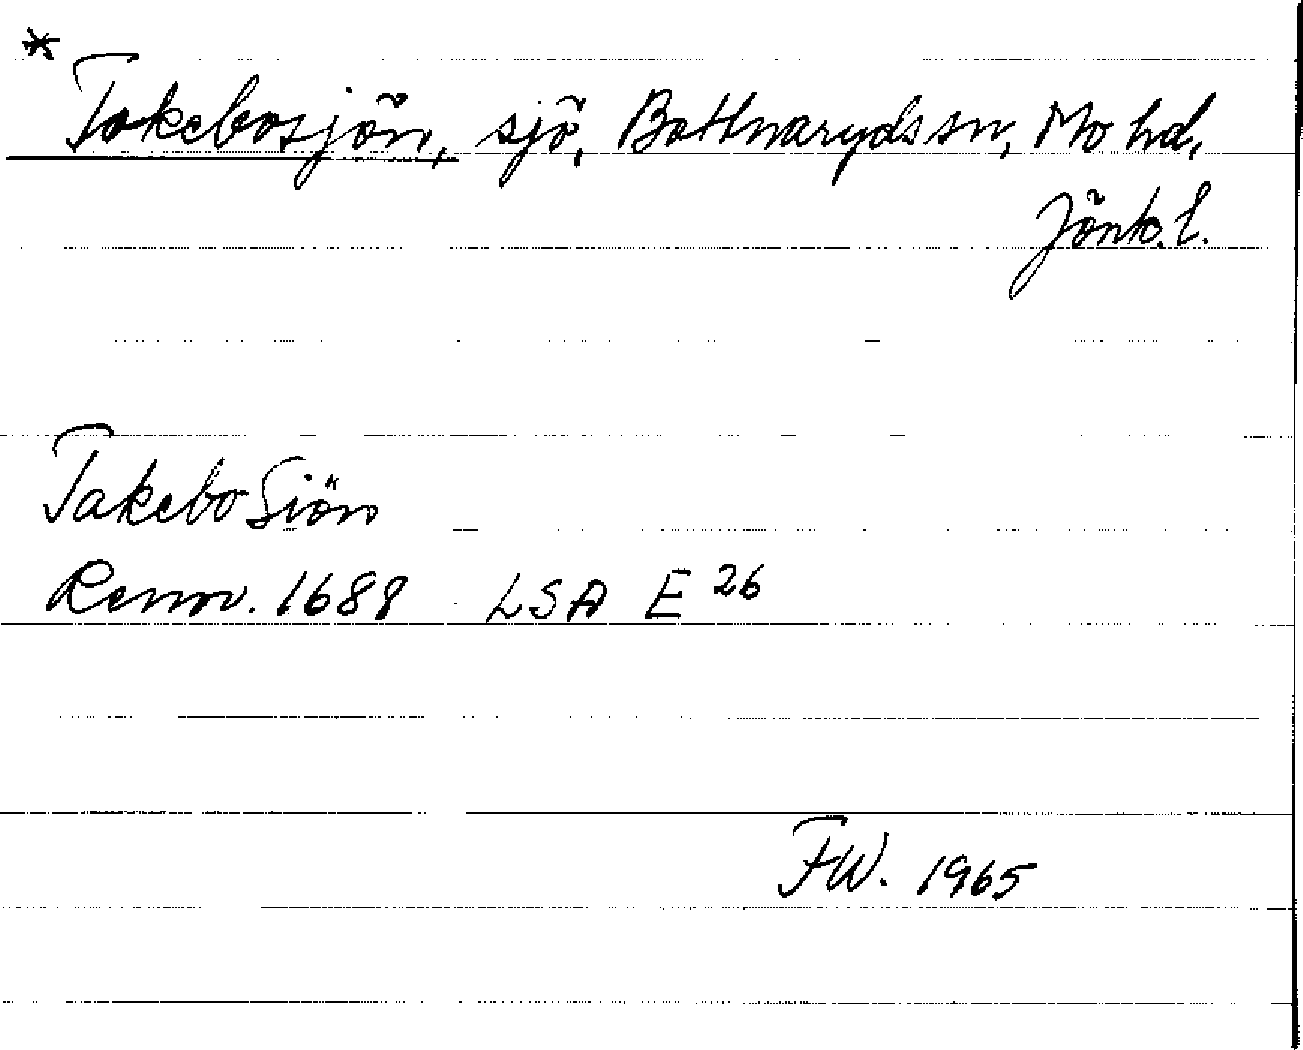 *
Takebosjön, sjö, Bottnaryds sn, Mo hd,
Jönk. l.
Takebo Siön
Renov. 1688 LSA E 26
FW. 1965